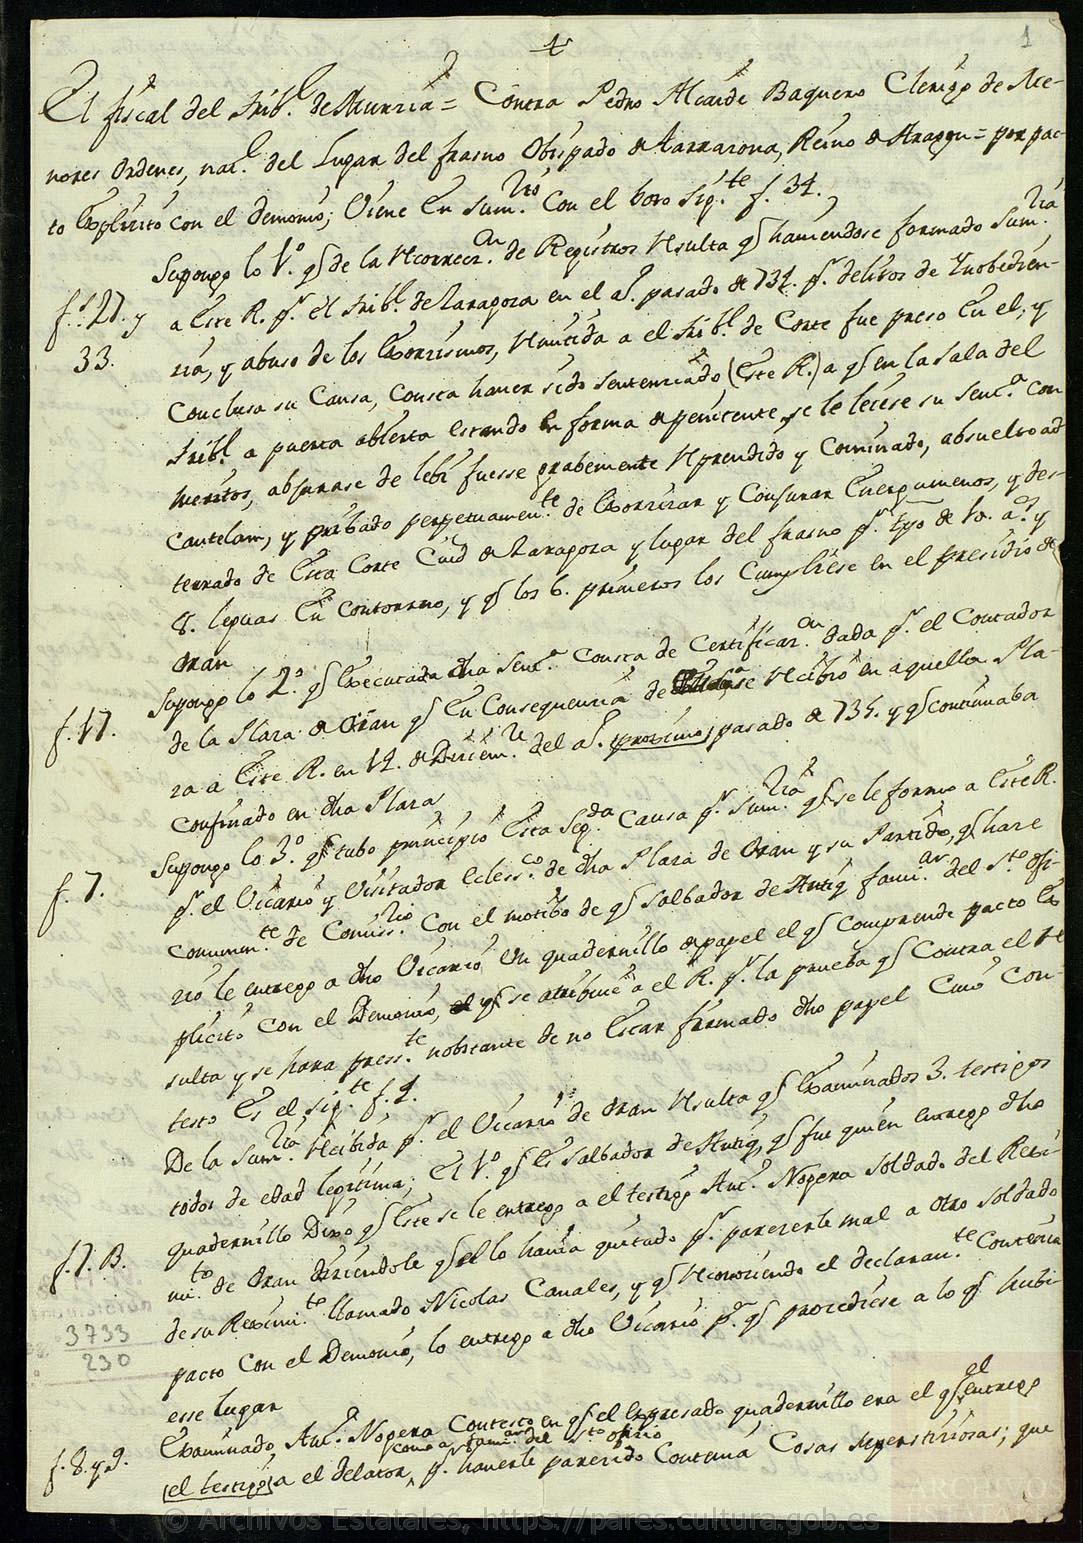 1
El fiscal del Tribl. de Murzia = Contra Pedro Alcaide Baquero Clerigo de Me-
nores Ordenes, nat. del Lugar del frasno Obispado de tarrazona, Reino de Aragon = por pac-
to Explizito con el Demonio; Viene en Sum.ria Con el voto Sig.te f. 34.
Supongo lo 1º. q de la Recorrecc.on de Registros Resulta q haviendose formado Sum.ria
fs. 27. y
33.
a Este R. pr. el tribl. de Zaragoza en el aº. pasado de 734. pr. delitos de Ynobedien-
zia, y abuso de los Exorzismos, Remitida a el tribl. de Corte fue preso En el, y
Conclusa su Causa, Consta haver sido Sentenciado (Este R.) a q en la Sala del
tribl. a puerta abierta estando en forma de penitente, se le leiese su Senta. con
meritos, abjurase de lebi fuesse grabemente Reprendido y Cominado, absuelto ad
Cautelam, y pribado perpetuamen.te de Exorzizar y Conjurar Energumenos, y des-
terrado de Esta Corte Ciud de Zaragoza y lugar del frasno pr. tpo de 10. aos. y
8. leguas En Contorno, y q los 6. primeros los Cumpliese en el presidio de
Oran
f. 17.
Supongo lo 2º. q Executada dha Senta. Consta de Certificaz.on dada pr. el Contador
de la Plaza de Oran q En Consequenzia de se Recibio en aquella Pla-
za a Este R. en 14. de Diziem.re del aº. proximo pasado de 735. y q continuaba
Confinado en dha Plaza
f. 7.
Supongo lo 3º. q tubo principio Esta Seg.da Causa pr. Sum.ria q se le formo a Este R.
pr. el Vicario y Visitador Ecless.co de dha Plaza de Oran y su Partido, q haze
Comunm.te de Comiss.rio Con el motibo de q Salbador de Antiq fami.ar del Sto ofi-
zio le entrego a dho Vicario Un quadernillo de papel el q Comprende pacto Ex
plicito Con el Demonio, q se atribuie a el R. pr. la prueba q Contra el Re
sulta y se hara press.te nobstante de no Estar firmado dho papel Cuio Con-
testo Es el sig.te f. 1.
De la Sum.ria Recibida pr. el Vicario de Oran Resulta q Examinados 3. testigos
todos de edad legitima; El 1º. q Es Salbador de Antiq, q fue quien entrego dho
f. 7. B.
quadernillo Dixo q Este se le entrego a el testigo Anto. Nogera Soldado del Rexi-
mi.to de Oran diziendole q el lo havia quitado pr. parezerle mal a Otro Soldado
de su Reximi.to llamado Nicolas Canales, y q Reconoziendo el declaran.te Contenia
3733
230
pacto Con el Demonio, lo entrego a dho Vicario pa. q prozediese a lo q hubi-
esse lugar
f. 8. y 9.
Examinado Anto. Nogera Contesto en q el Expresado quadernillo era el q el entrego
como a famiar. del Sto ofizio
(el testigo) a el delator, pr. haverle parezido Contenia Cosas Superstiziosas; que
© Archivos Estatales, https://pares.cultura.gob.es